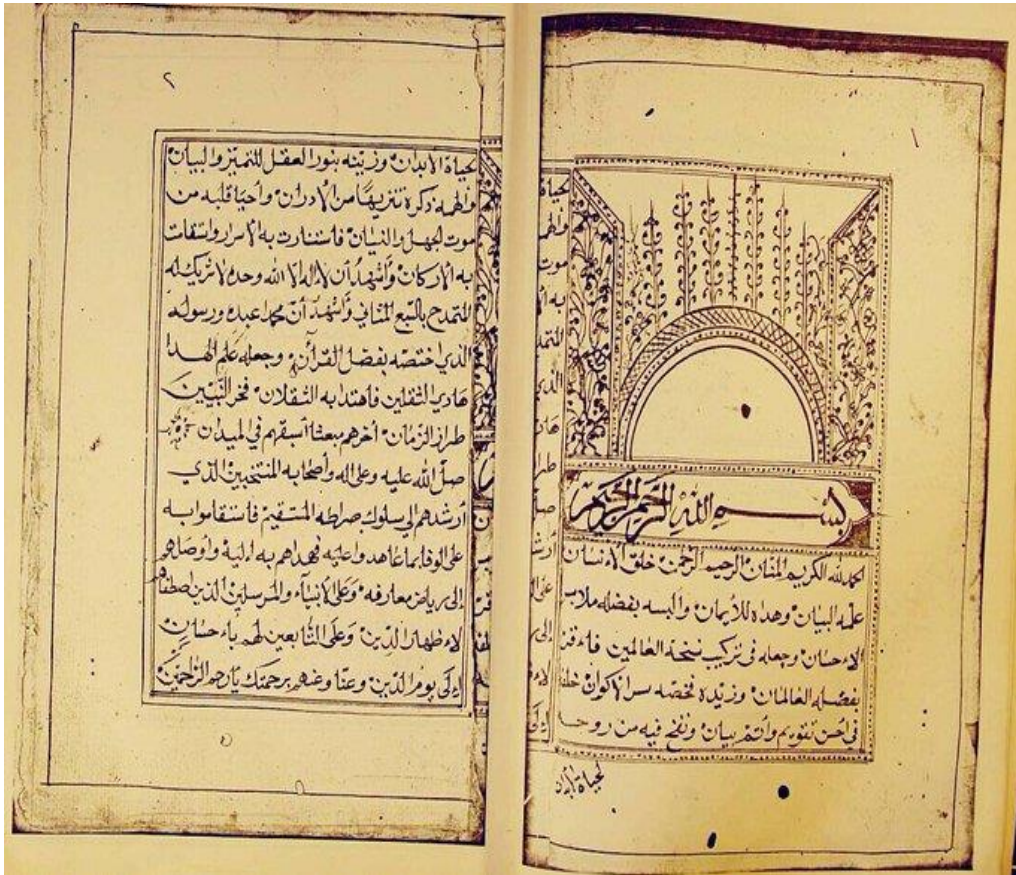 بسم الله الرحمن الرحيم
الحمد لله الكريم المنان الرحيم الرحمن خلق الاءنسان
علمه البيان وهداه للاءيمان والبسه بفضله ملابس
الاءحسان وجعله في تركيب نسخة العالمين فاءقتر
بفضله العالمان وزبده نخصه سر الاكوان خلقه
في احسن تقويم وأتم بيان ونفخ فيه من روحه
لحياة أبدان
٢
لحياة الأبدان وزينه بنور العقل للتميز والبيان
والهمه ذكره تنزيهًا من الأدران وأحيا قلبه من
موت الجهل والنسيان فاستنارت به الأسرار واستقامت
به الاركان وأشهد أن لا إله الا الله وحده لا شريك له
المتمدح بالسبع المثاني وأشهد أن محمدا عبده ورسوله
الذي اختصه بفضل القرآن وجعله علم الهدا
هادي الثقلين فأهتدا به الثقلان فخر النبيين
طراز الزمان أخرهم مبعثا أسبقهم في الميدان
صل الله عليه وعلى اله وأصحابه المنتخبين الذي
أرشدهم الي سلوك صراطه المستقيم فاستقاموا به
على الوفا بما عاهدوا عليه فهداهم به اءليه وأوصلهم
إلى رياض معارفه وعلى الأنبيآء والمرسلين الذين اصطفاهم
لاءظهار الدين وعلى التابعين لهم باءحسان
اءلى يوم الدين وعنا وعنهم برحمتك يا أرحم الراحمين